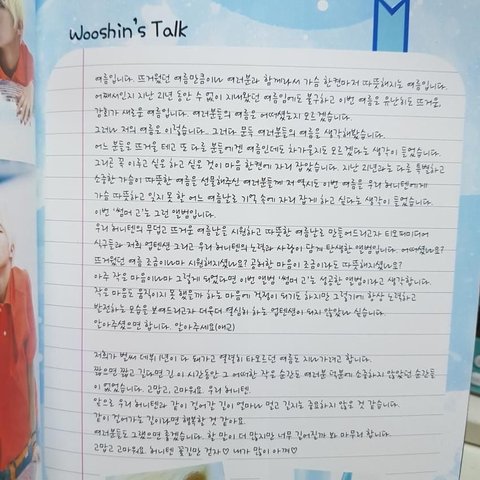 Wooshin's Talk
여름입니다. 뜨거웠던 여름만큼이나 여러분과 함께라서 가슴 한켠마저 따뜻해지는 여름입니다.
어째서인지 지난 21년 동안 수 없이 지내왔던 여름임에도 불구하고 이번 여름은 유난히도 뜨거운,
감회가 새로운 여름입니다. 여러분들의 여름은 어떠셨는지 모르겠습니다.
그러나 저의 여름은 이렇습니다. 그러다 문득 여러분들의 여름을 생각해봤습니다.
어느 분들은 뜨거울 테고 또 다른 분들에게는 여름인데도 차가울지도 모르겠다는 생각이 들었습니다.
그리곤 꼭 이루고 싶은 하고 싶은 것이 마음 한켠에 자리 잡았습니다. 지난 21년과는 다른 특별하고
소중한 가슴이 따뜻한 여름을 선물해주신 여러분들께 저 역시도 이번 여름은 우리 허니텐에게
가슴 따뜻하고 잊지 못 할 어느 여름날로 기억 속에 자리 잡게 하고 싶다는 생각이 들었습니다.
이번 '썸머 고'는 그런 앨범입니다.
우리 허니텐의 무덥고 뜨거운 여름은 시원하고 따뜻한 여름날로 만들어드리고자 티오피미디어
식구들과 저희 업텐션 그리고 우리 허니텐의 노력과 사랑이 담겨 탄생한 앨범입니다. 어떠셨나요?
뜨거웠던 여름 조금이나마 시원해지셨나요? 공허한 마음이 조금이라도 따뜻해지셨나요?
아주 작은 마음이나마 그렇게 되었다면 이번 앨범 '썸머 고'는 성공한 앨범이라고 생각합니다.
작은 마음도 움직이지 못 했을까 하는 마음에 걱정이 되기도 하지만 그렇기에 항상 노력하고
발전하는 모습을 보여드리고자 더욱더 열심히 하는 업텐션이 되지 않았나 싶습니다.
알아주셨으면 합니다. 알아주세요(애교)
저희가 벌써 데뷔 1년이 다 돼가고 열렬히 타오르던 여름도 지나가려고 합니다.
짧으면 짧고 길다면 긴 이 시간동안 그 어떠한 작은 순간도 여러분 덕분에 소중하지 않았던 순간들
이 없었습니다. 고맙고, 고마워요. 우리 허니텐.
앞으로 우리 허니텐과 같이 걸어갈 길이 얼마나 멀고 긴지는 중요하지 않은 것 같습니다.
같이 걸어가는 길이라면 행복할 것 같아요.
여러분들도 그랬으면 좋겠습니다. 할 말이 더 많지만 너무 길어질까 봐 마무리 합니다.
고맙고 고마워요. 허니텐 꽃길만 걷자♡ 내가 많이 아껴♡